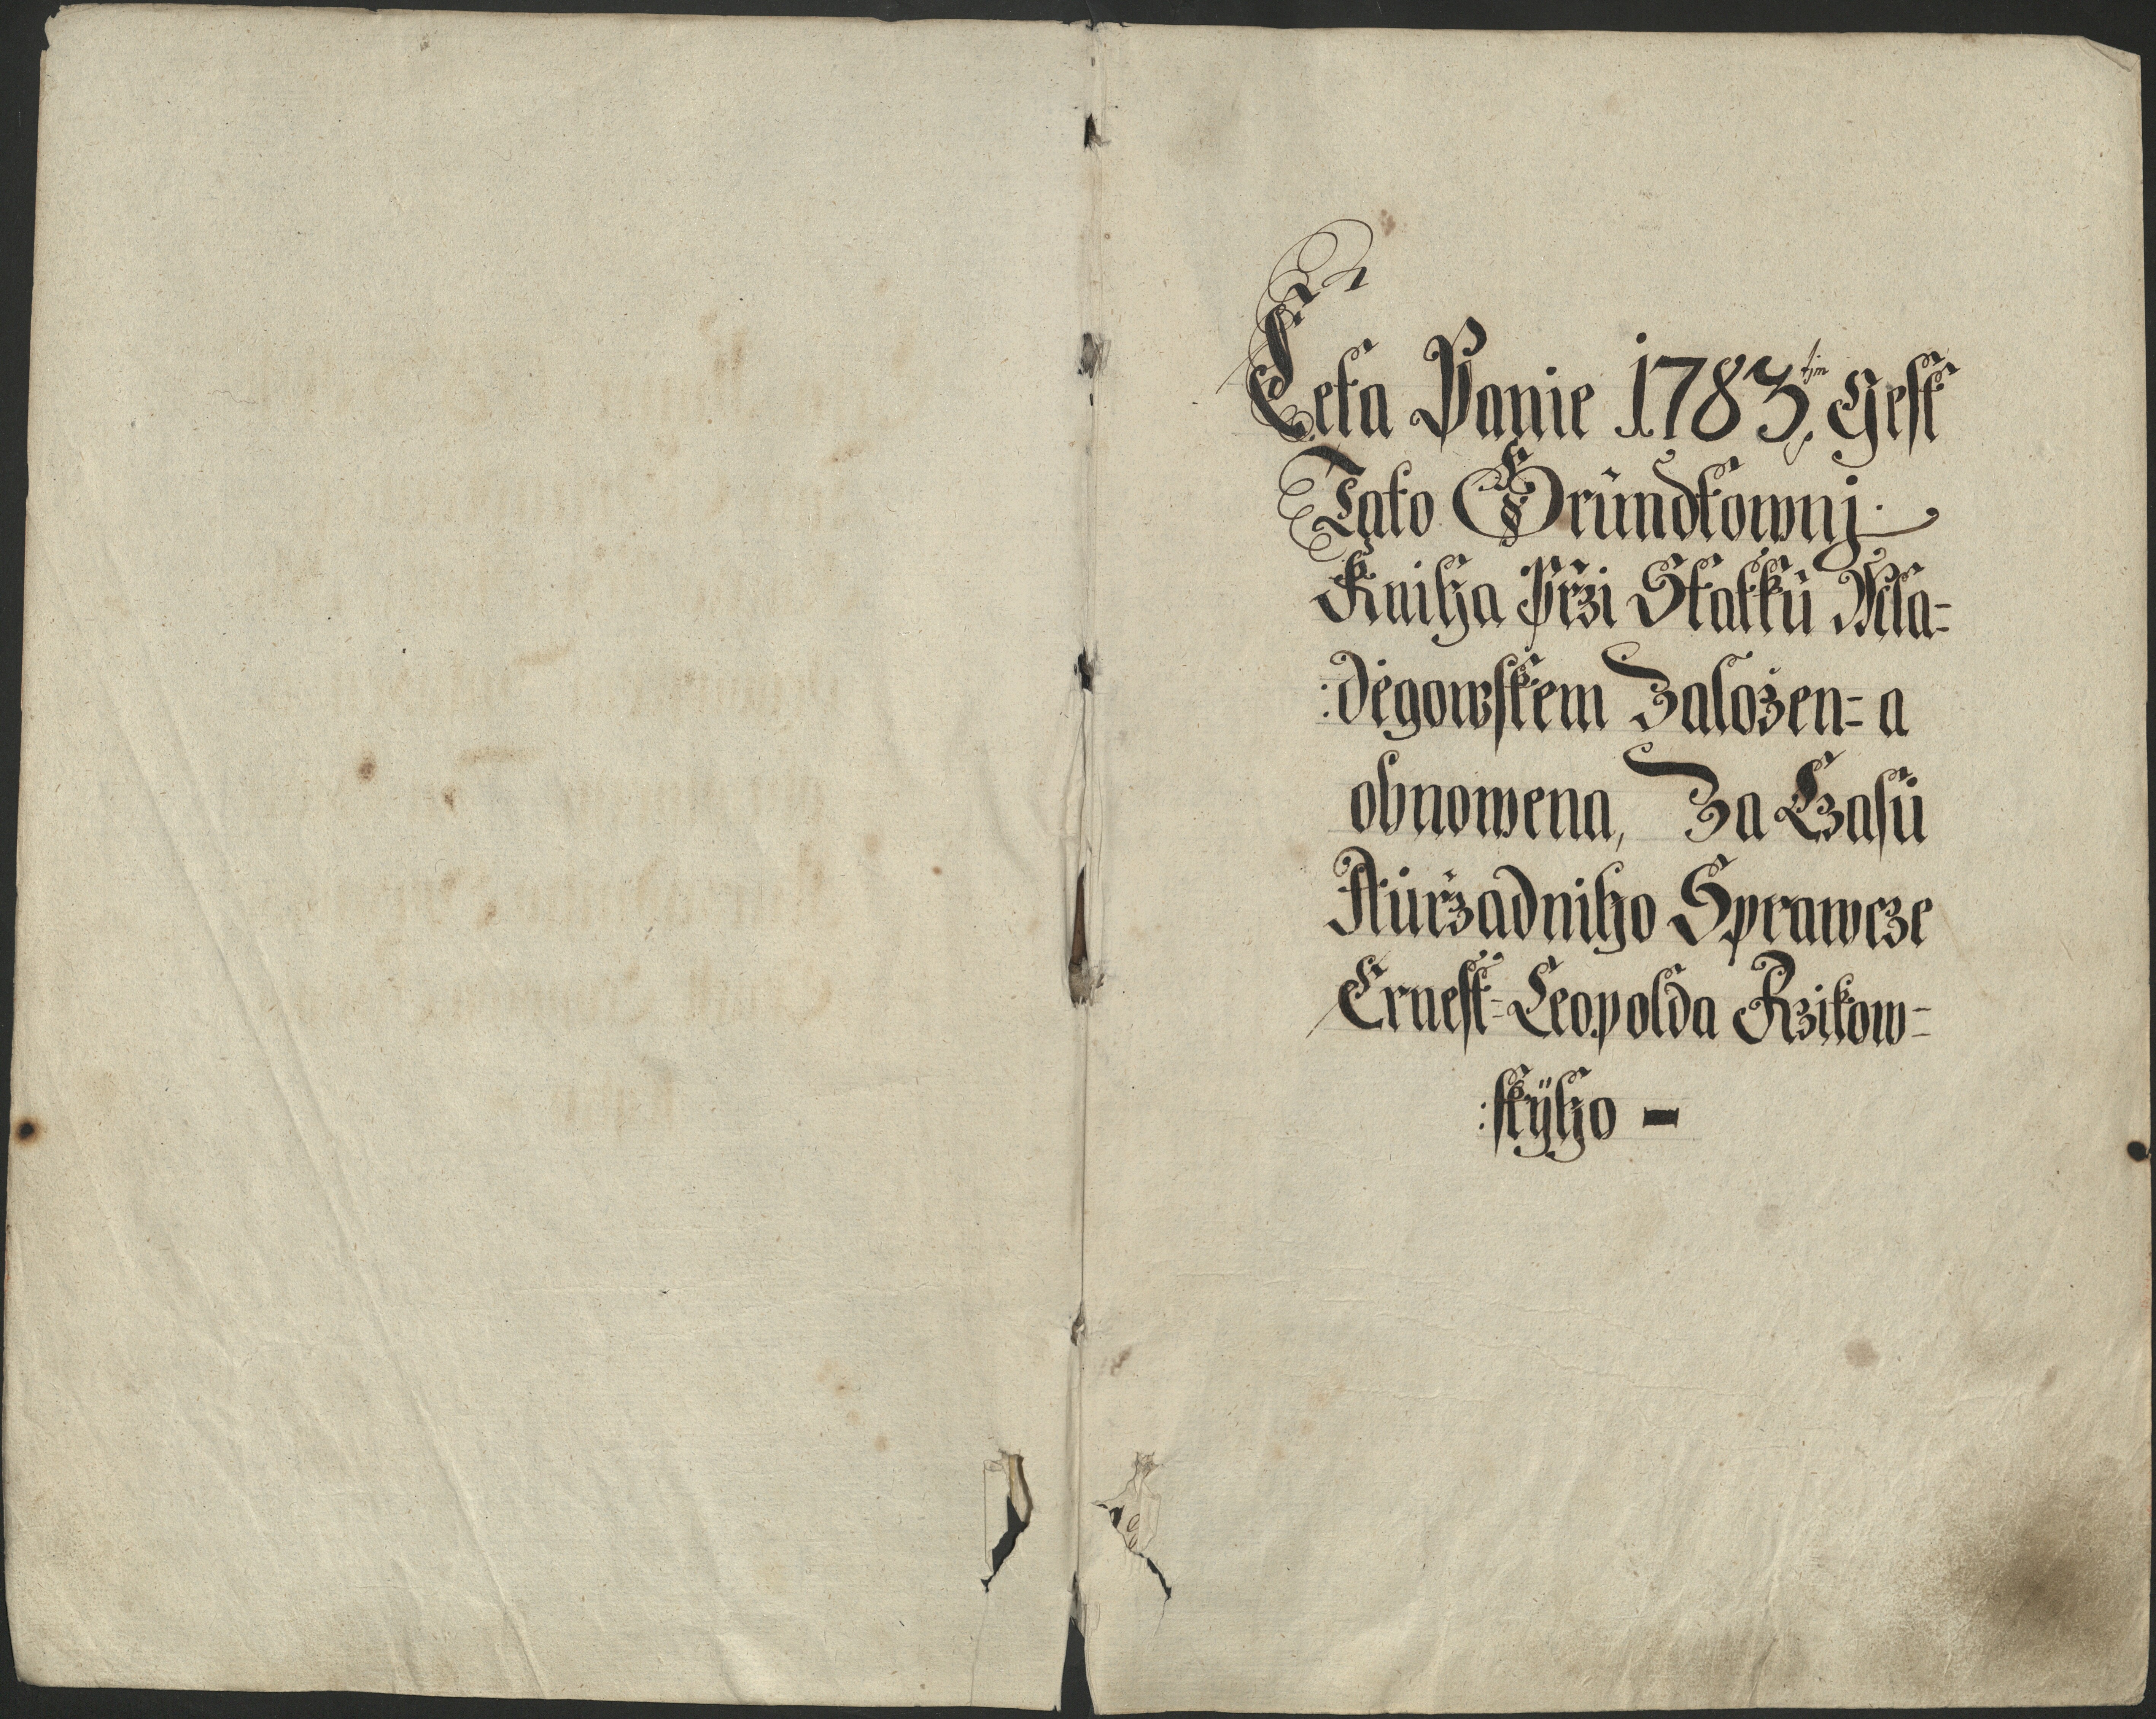 Leta Panie 1783tjm Gest
Tato Gründtownj
Kniha Przi Statkü Mla-
:degowskem Založen- a
obnowena, Za Czasü
Auržadniho Sprawcze
Ernest-Leopolda Rzikow-
:skÿho –